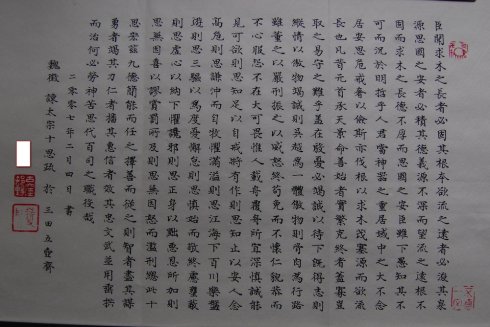 臣聞求木之長者必固其根本欲流之遠者必浚其泉
源思國之安者必積其德義源不深而望流之遠根不
固而求木之長德不厚而思國之安臣雖下愚知其不
可而況於明哲乎人君當神器之重居域中之大不念
居安思危戒奢以儉斯亦伐根以求木茂塞源而欲流
長也凡昔元首承天景命善始者實繁克終者蓋寡豈
取之易守之難乎蓋在殷憂必竭誠以待下既得志則
縱情以傲物竭誠則吳越為一體傲物則骨肉為行路
雖董之以嚴刑振之以威怒終苟免而不懷仁貌恭而
不心服怨不在大可畏惟人載舟覆舟所宜深慎誠能
見可欲則思知足以自戒將有作則思知止以安人念
高危則思謙沖而自牧懼滿溢則思江海下百川樂盤
遊則思三驅以為度憂懈怠則思慎始而敬終慮壅蔽
則思虛心以納下懼讒邪則思正身以黜惡恩所加則
思無因喜以謬賞罰所及則思無因怒而濫刑總此十
思宏茲九德簡能而任之擇善而從之則智者盡其謀
勇者竭其力仁者播其惠信者效其忠文武並用垂拱
而治何必勞神苦思代百司之職役哉
二零零七年二月四日 書
魏徵 諫太宗十思疏 於 三四五 齋